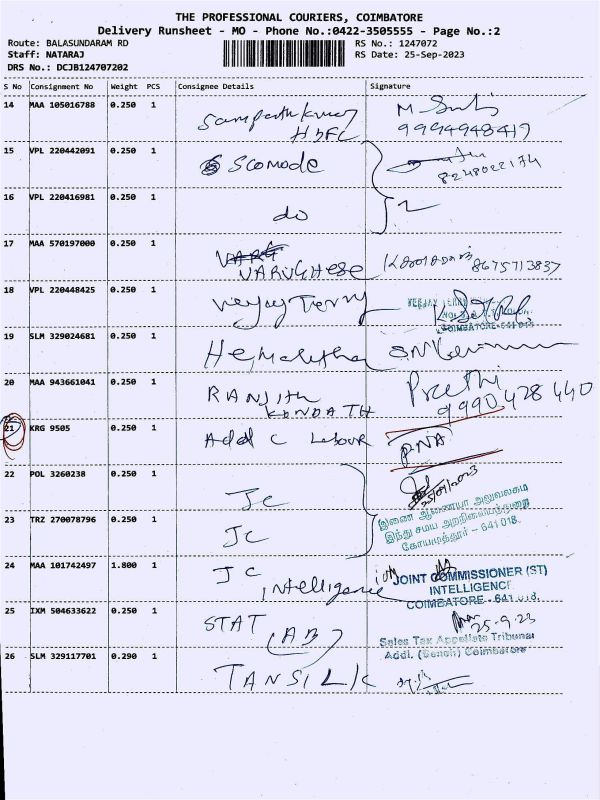 THE PROFESSIONAL COURIERS, COIMBATORE
Delivery Runsheet - MO - Phone No.:0422-3505555 - Page No.:2
Route: BALASUNDARAM RD
RS No.: 1247072
Staff: NATARAJ
RS Date: 25-Sep-2023
DRS No.: DCJB124707202
S No Consignment No Weight PCS Consignee Details Signature
14 MAA 105016788 0.250 1
HDFC
9994948417
15 VPL 220442091 0.250 1 Scomode
8248022174
16 VPL 220416981 0.250 1 do
17 MAA 570197000 0.250 1
VARUGHESE 8675713837
18 VPL 220448425 0.250 1 Veejay Terry
VEEJAY TERRY
COIMBATORE-641 018
19 SLM 329024681 0.250 1 Hemalatha
20 MAA 943661041 0.250 1 RANJITH Preethi
KANDATH 9990428440
21 KRG 9505 0.250 1 Addl C Labour PNA
22 POL 3260238 0.250 1 JC
இணை ஆணையர் அலுவலகம்
இந்து சமய அறநிலையத்துறை
கோயமுத்தூர் - 641 018.
23 TRZ 270078796 0.250 1 JC
24 MAA 101742497 1.800 1 JC
Intelligence
JOINT COMMISSIONER (ST)
INTELLIGENCE
COIMBATORE - 641 018.
25 IXM 504633622 0.250 1 STAT
(AB)
25-9-23
Sales Tax Appellate Tribunal
Addl. (Bench) Coimbatore
26 SLM 329117701 0.290 1 TANSILK